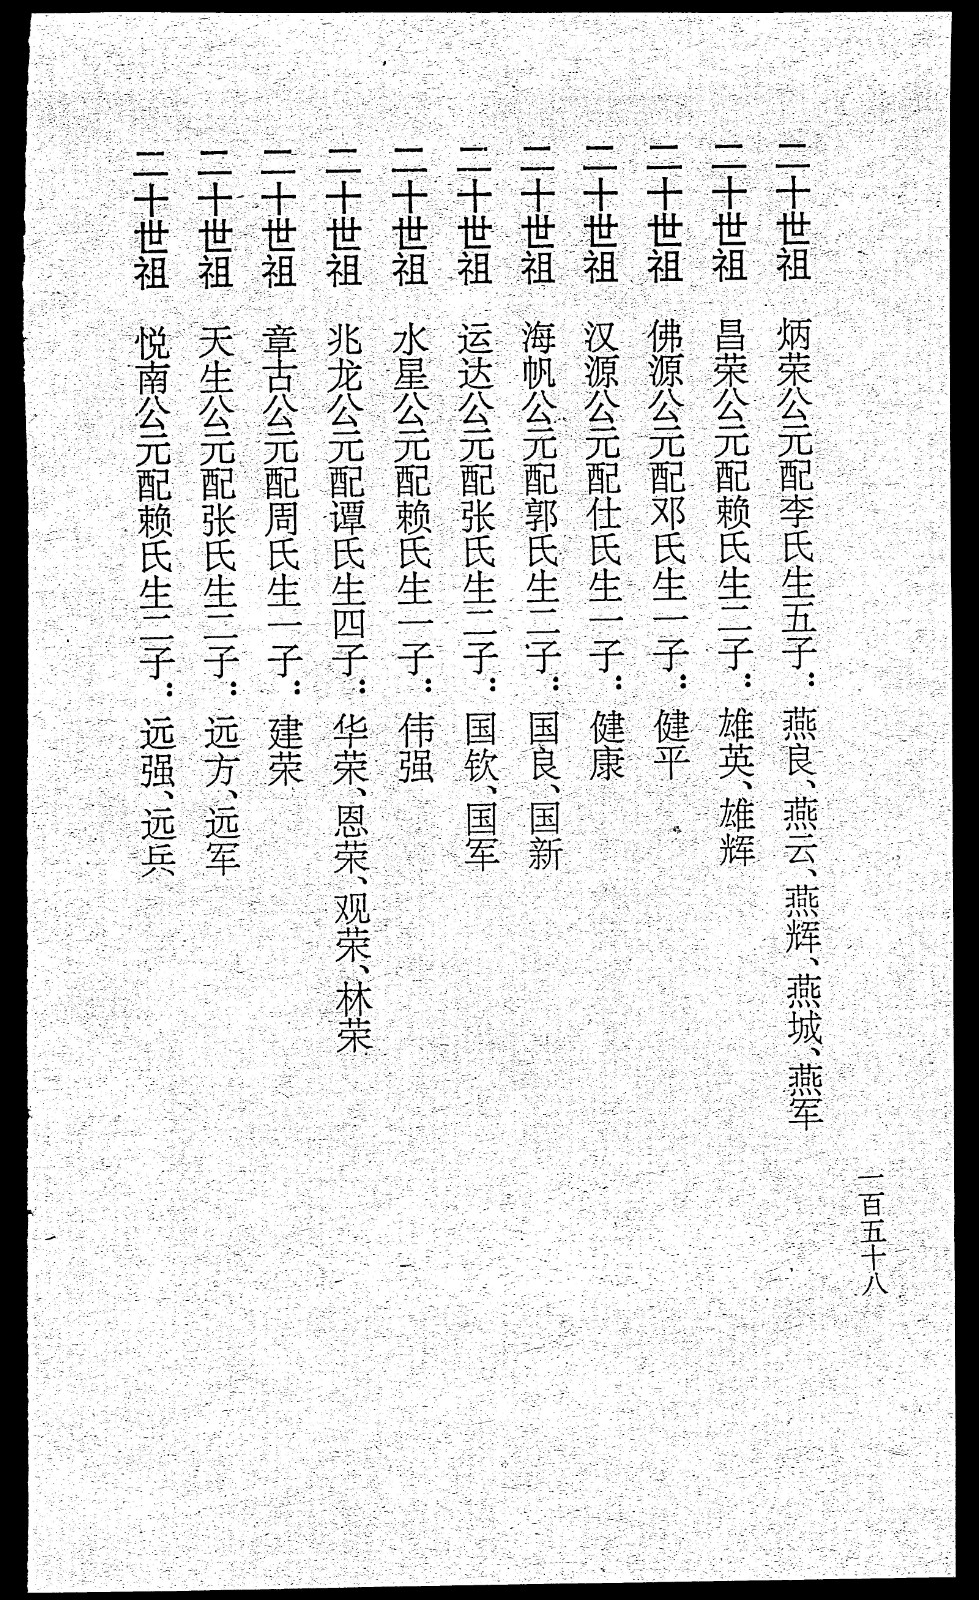 一百五十八
二十世祖 炳荣公元配李氏生五子：燕良、燕云、燕辉、燕城、燕军
二十世祖 昌荣公元配赖氏生二子：雄英、雄辉
二十世祖 佛源公元配邓氏生一子：健平
二十世祖 汉源公元配仕氏生一子：健康
二十世祖 海帆公元配郭氏生二子：国良、国新
二十世祖 运达公元配张氏生二子：国钦、国军
二十世祖 水星公元配赖氏生一子：伟强
二十世祖 兆龙公元配谭氏生四子：华荣、恩荣、观荣、林荣
二十世祖 章古公元配周氏生一子：建荣
二十世祖 天生公元配张氏生二子：远方、远军
二十世祖 悦南公元配赖氏生二子：远强、远兵